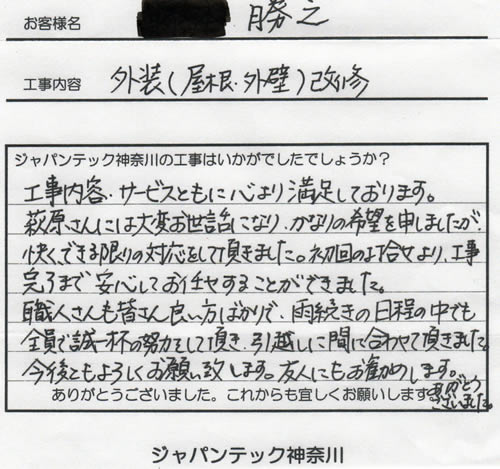 お客様名 勝之
工事内容 外装(屋根・外壁)改修
ジャパンテック神奈川の工事はいかがでしたでしょうか?
工事内容・サービスともに心より満足しております。
萩原さんには大変お世話になり、かなりの希望を申しましたが、
快くできる限りの対応をして頂きました。初回の打合せより、工事
完了まで安心してお任せすることができました。
職人さんも皆さん良い方ばかりで、雨続きの日程の中でも
全員で誠一杯の努力をして頂き、引越しに間に合わせて頂きました。
今後ともよろしくお願い致します。友人にもお勧めします。
ありがとうございました。
ありがとうございました。これからも宜しくお願いします。
ジャパンテック神奈川